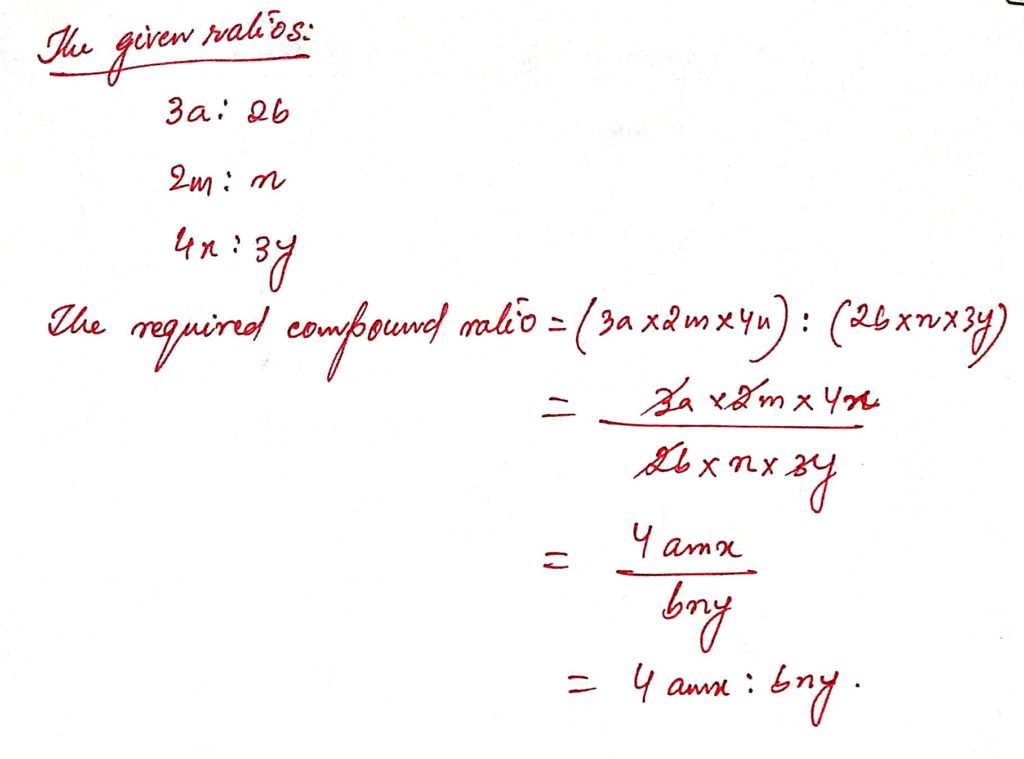 The given ratios:
3a : 2b
2m : n
4x : 3y
The required compound ratio = (3a x 2m x 4x) : (2b x n x 3y)
= 3a x 2m x 4x
2b x n x 3y
= 4 amx
bny
= 4 amx : bny.